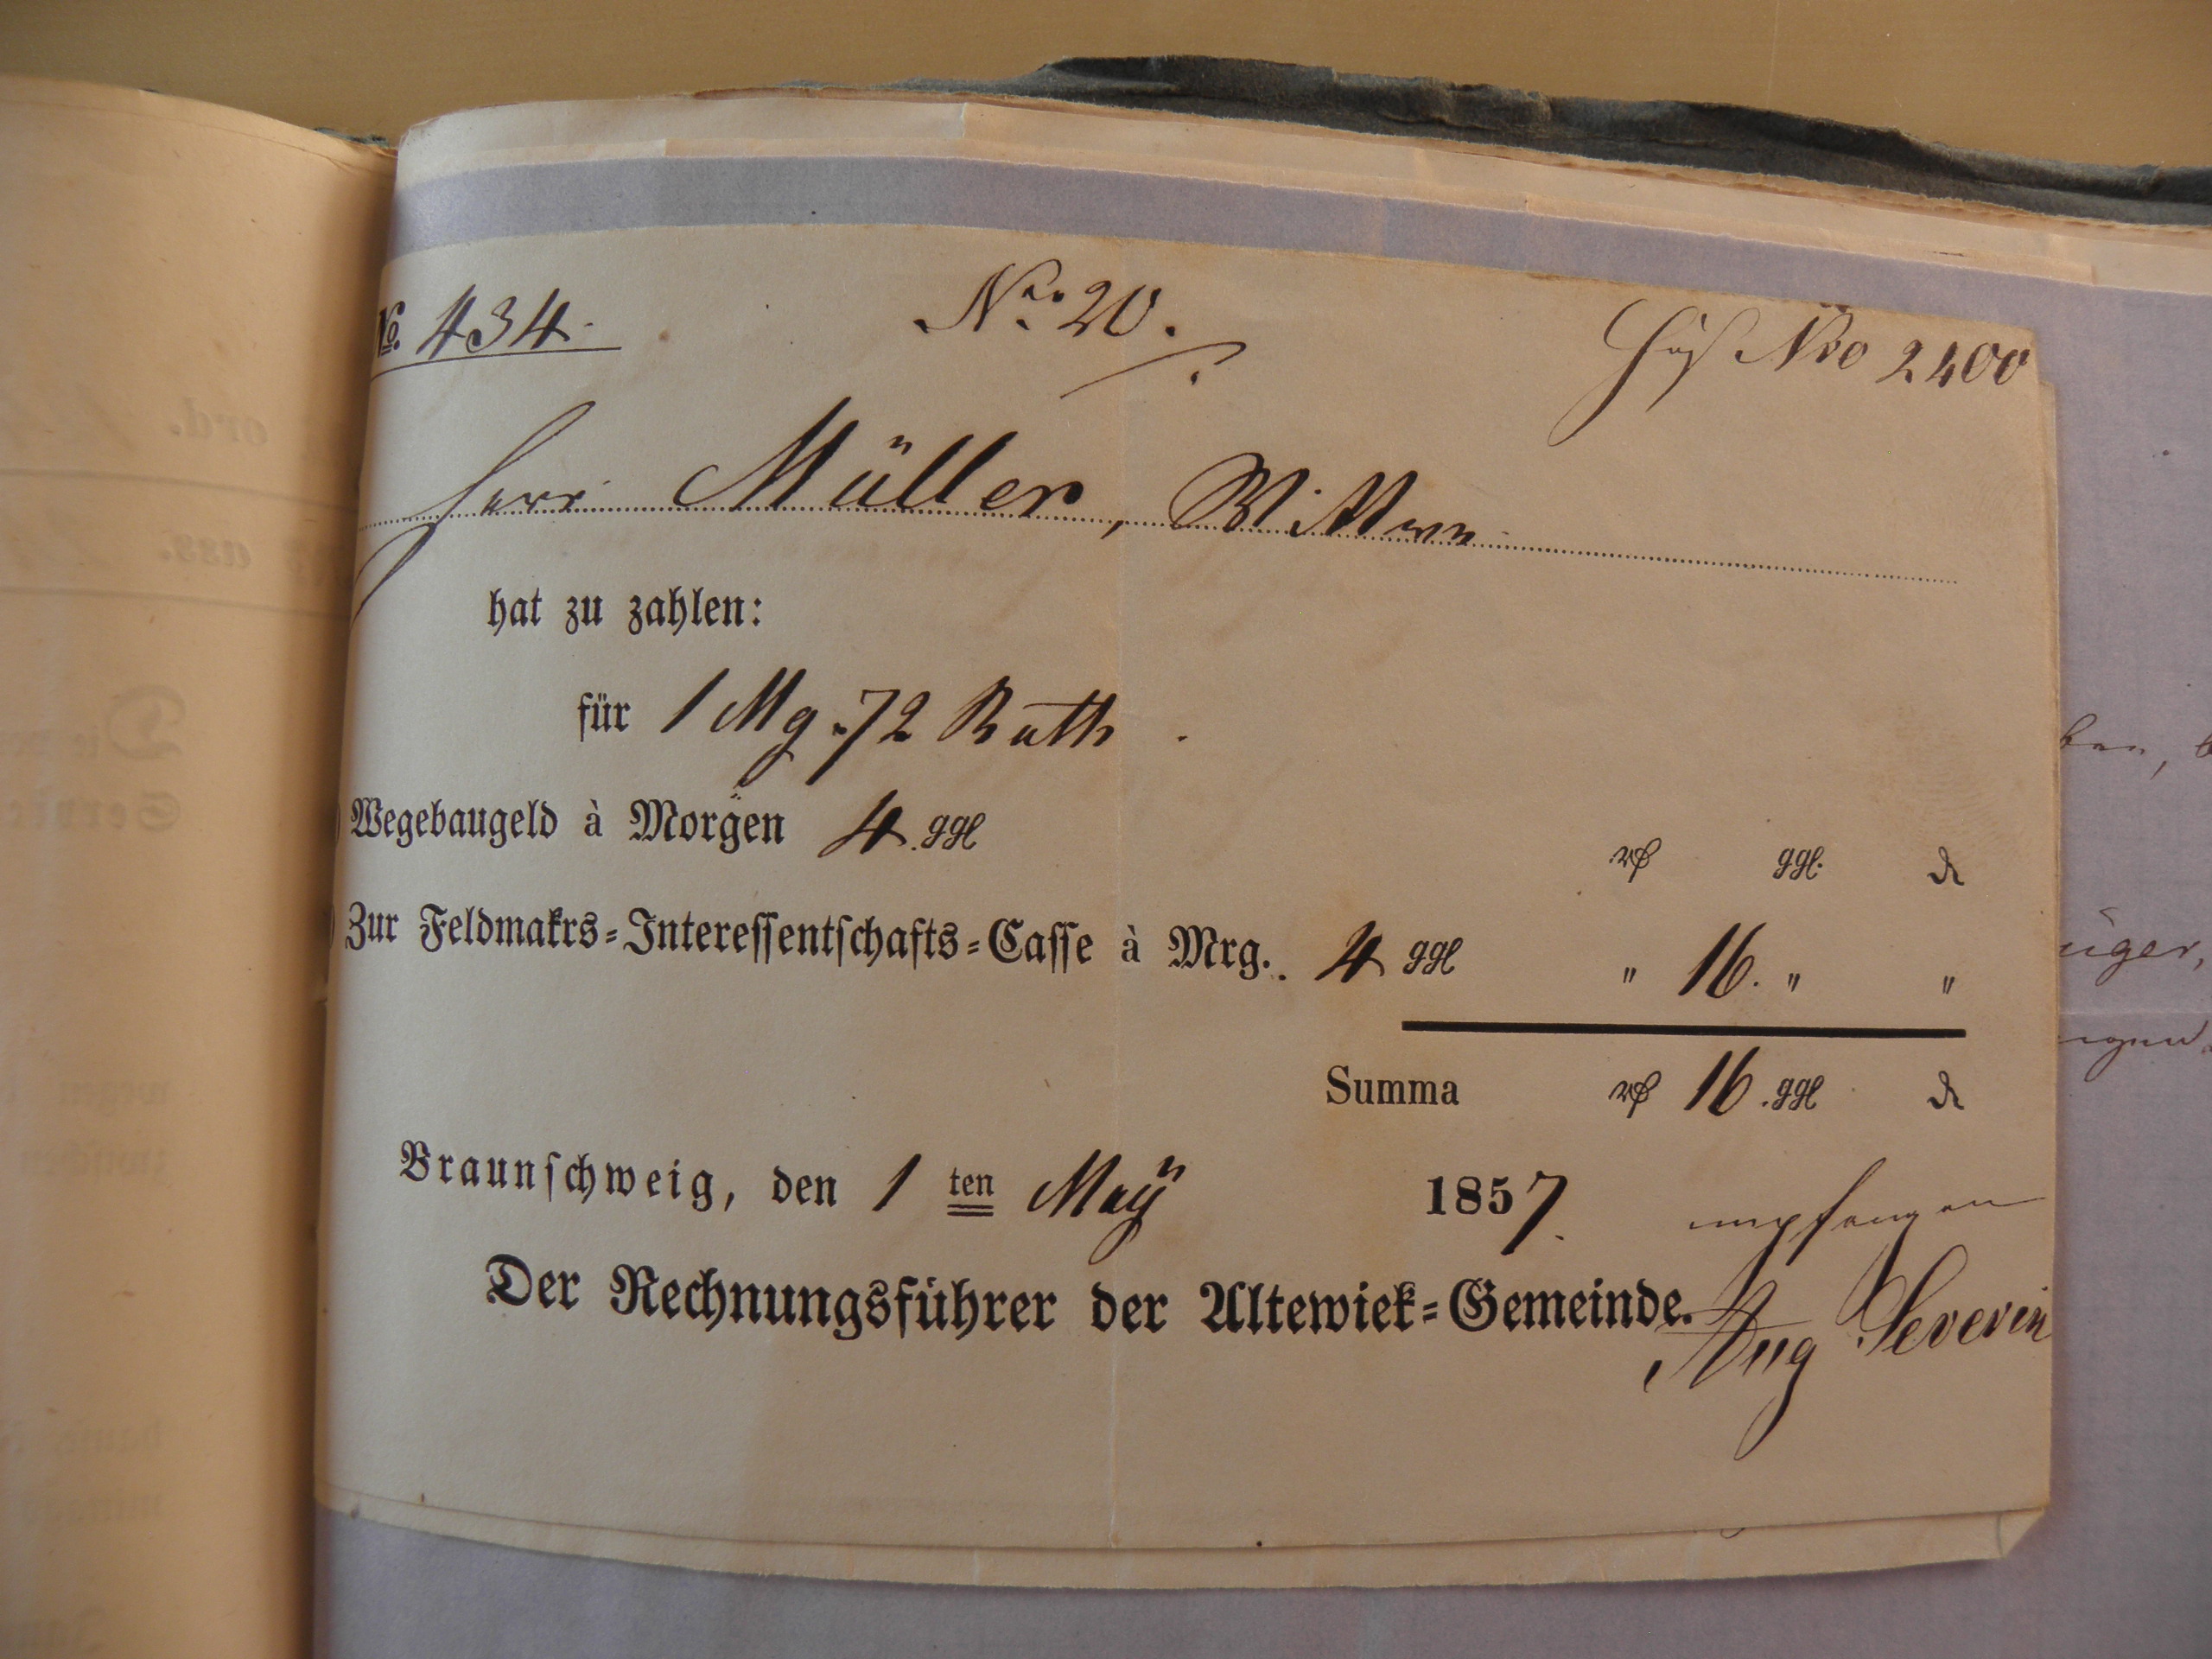 No. 434.
Nro 20.
Hs Nro 2400
Herr Müller, Wittwe
hat zu zahlen:
für 1 Mg. 72 Ruth.
Wegebaugeld à Morgen 4 ggl
ggl.
Zur Feldmakrs-Interessentschafts-Casse à Mrg. 4 ggl " 16. " "
Summa 16. ggl
Braunschweig, den 1 ten May 1857.
empfangen
Der Rechnungsführer der Altewiek-Gemeinde.
Aug Severin